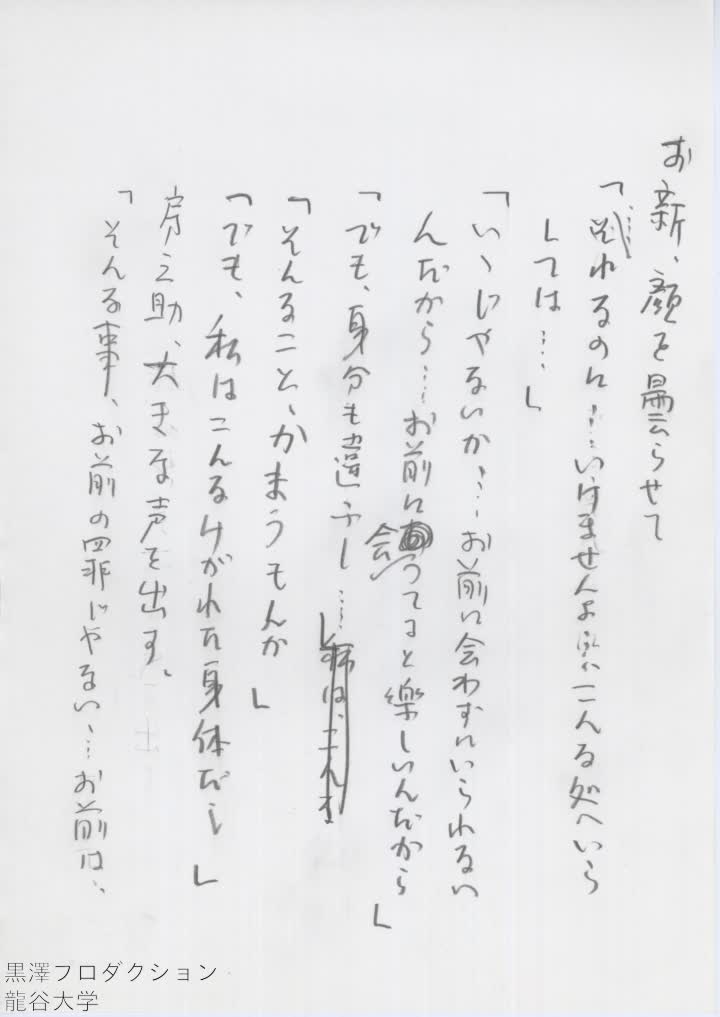 お新、顔を曇らせて
「……それるのに……いけませんよ こんな処へいら
しては……」
「いゝじゃないか……お前に会わずにいられない
んだから……お前に会ってると楽しいんだから」
「でも、身分も違ふし……」
「そんなこと、かまうもんか」
「でも、私はこんなけがれた身体だし」
房之助、大きな声を出す。
「そんな事、お前の罪じゃない……お前は……
黒澤プロダクション
龍谷大学